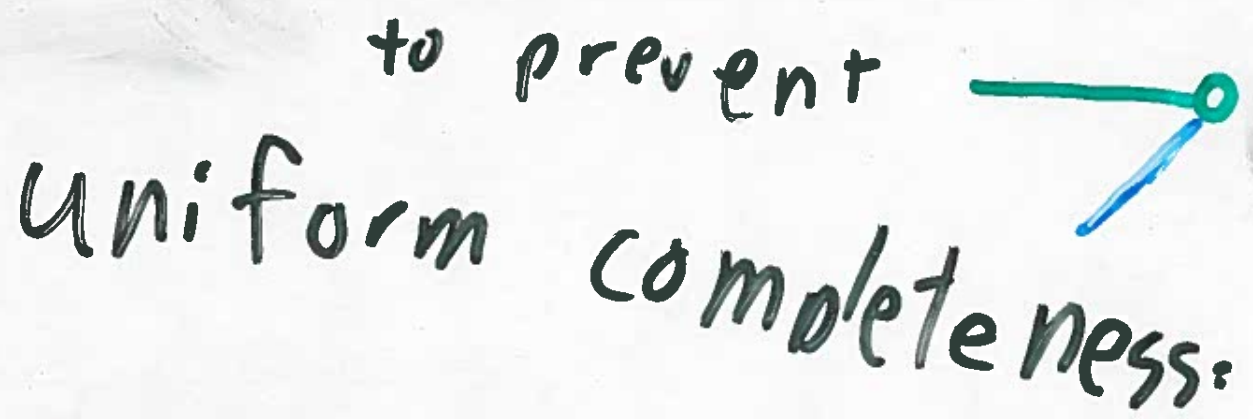 to prevent
uniform completeness: